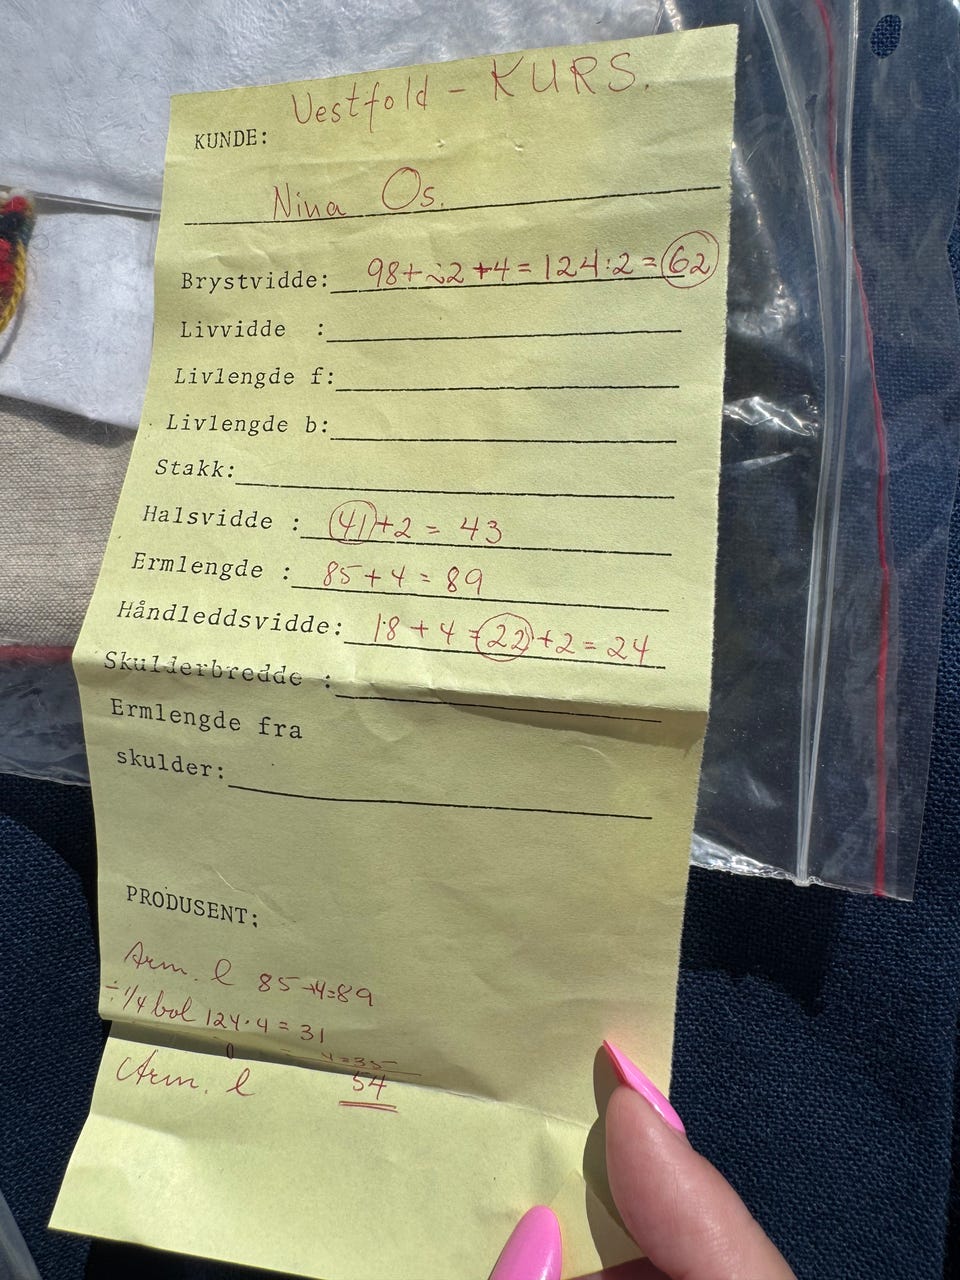 Vestfold - KURS.
KUNDE:
Nina Os.
Brystvidde: 98+22+4=124:2=62
Livvidde :
Livlengde f:
Livlengde b:
Stakk:
Halsvidde : 41+2 = 43
Ermlengde : 85+4=89
Håndleddsvidde: 18+4=22+2=24
Skulderbredde :
Ermlengde fra
skulder:
PRODUSENT:
Arm. l 85+4=89
÷ 1/4 bol 124:4=31
4=35
Arm. l 54